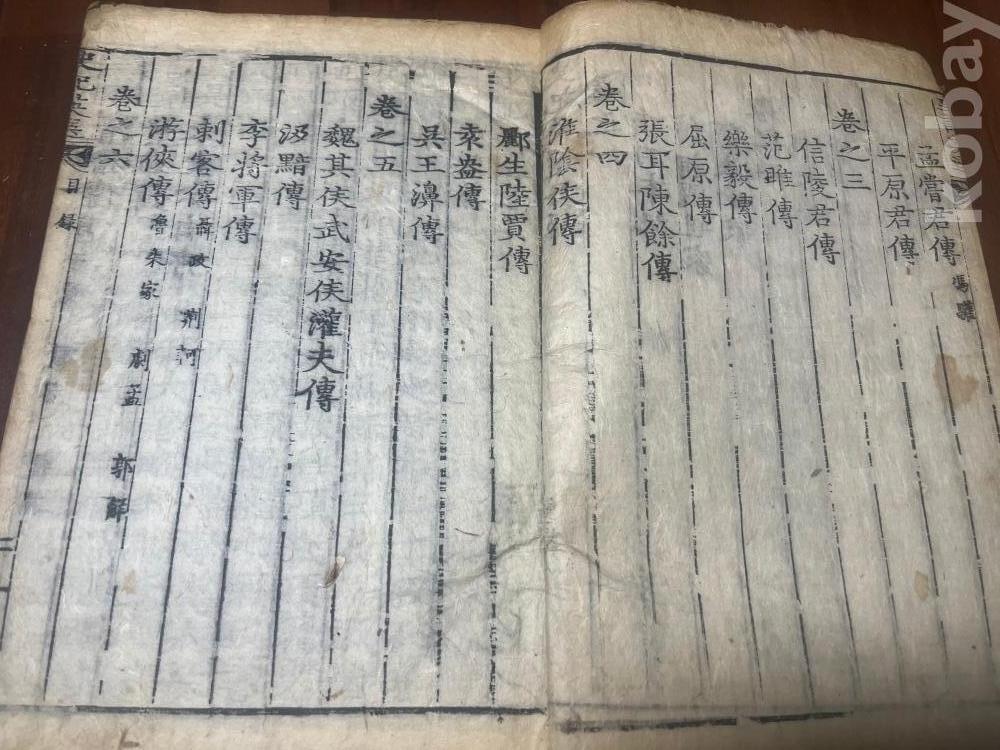 孟嘗君傳 馮驩
平原君傳
卷之三
信陵君傳
范雎傳
樂毅傳
屈原傳
張耳陳餘傳
卷之四
淮陰侯傳
酈生陸賈傳
袁盎傳
吳王濞傳
卷之五
魏其侯武安侯灌夫傳
汲黯傳
李將軍傳
刺客傳 聶政 荊軻
卷之六
游俠傳 魯朱家 劇孟 郭解
史記英選 目錄
kobay